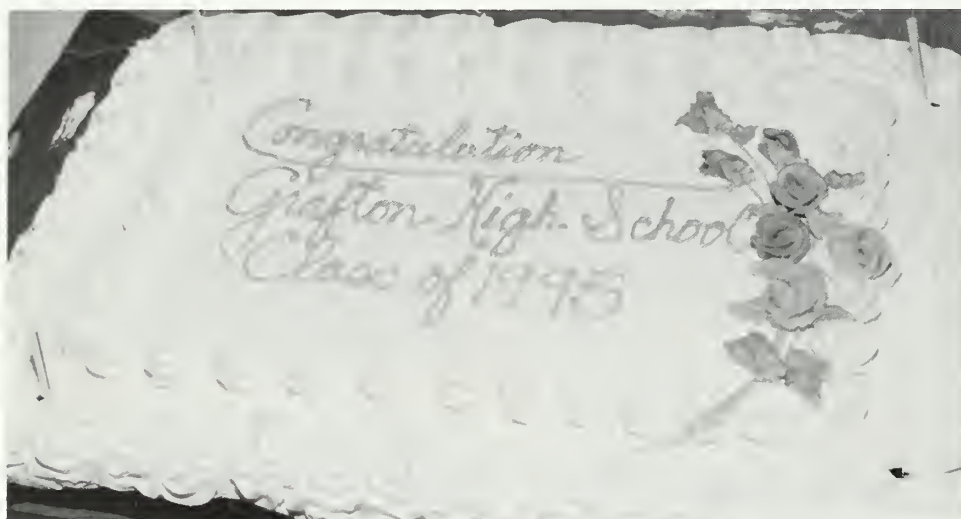 Congratulation
Grafton High School
Class of 1993